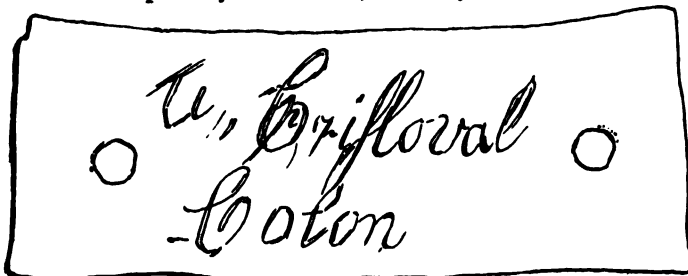 U,, Criſtoval
Colon